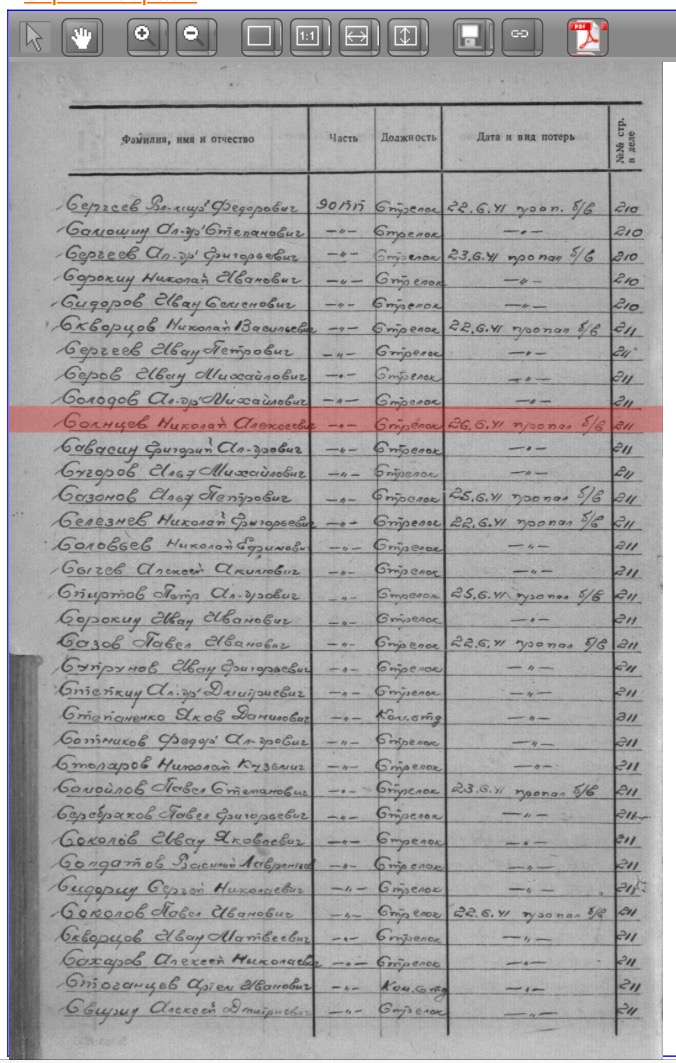 1:1
PDF
Фамилия, имя и отчество Часть Должность Дата и вид потерь №№ стр. в деле
Сергеев Федорович 90 пп Стрелок 22.6.41 проп. б/в 210
Самошин Ал-др Степанович -"- Стрелок -"- 210
Сергеев Ал-др Григорьевич -"- Стрелок 23.6.41 пропал б/в 210
Сорокин Николай Иванович -"- Стрелок -"- 210
Сидоров Иван Семенович -"- Стрелок -"- 210
Скворцов Николай Васильевич -"- Стрелок 22.6.41 пропал б/в 211
Сергеев Иван Петрович -"- Стрелок -"- 211
Серов Иван Михайлович -"- Стрелок -"- 211
Солодов Ал-др Михайлович -"- Стрелок -"- 211
Солнцев Николай Алексеевич -"- Стрелок 26.6.41 пропал б/в 211
Савасин Григорий Ал-дрович -"- Стрелок -"- 211
Сугоров Михайлович -"- Стрелок -"- 211
Сазонов Петрович -"- Стрелок 25.6.41 пропал б/в 211
Селезнев Николай Григорьевич -"- Стрелок 22.6.41 пропал б/в 211
Соловьев Николай Ефимович -"- Стрелок -"- 211
Сычев Алексей Акимович -"- Стрелок -"- 211
Спиртов Петр Ал-дрович -"- Стрелок 25.6.41 пропал б/в 211
Сорокин Иван Иванович -"- Стрелок -"- 211
Сазов Павел Иванович -"- Стрелок 22.6.41 пропал б/в 211
Супрунов Иван Григорьевич -"- Стрелок -"- 211
Степкин Ал-др Дмитриевич -"- Стрелок -"- 211
Степаненко Яков Данилович -"- Ком.отд -"- 211
Сотников Федор Ал-дрович -"- Стрелок -"- 211
Столаров Николай Кузьмич -"- Стрелок -"- 211
Самойлов Павел Степанович -"- Стрелок 23.6.41 пропал б/в 211
Серебраков Павел Григорьевич -"- Стрелок -"- 211
Соколов Иван Яковлевич -"- Стрелок -"- 211
Солдатов Василий Лаврентьев -"- Стрелок -"- 211
Сидорин Сергей Николаевич -"- Стрелок -"- 211
Соколов Павел Иванович -"- Стрелок 22.6.41 пропал б/в 211
Скворцов Иван Матвеевич -"- Стрелок -"- 211
Сахаров Алексей Николаевич -"- Стрелок -"- 211
Стоганцев Артем Иванович -"- Ком.отд -"- 211
Свирид Алексей Дмитриевич -"- Стрелок -"- 211